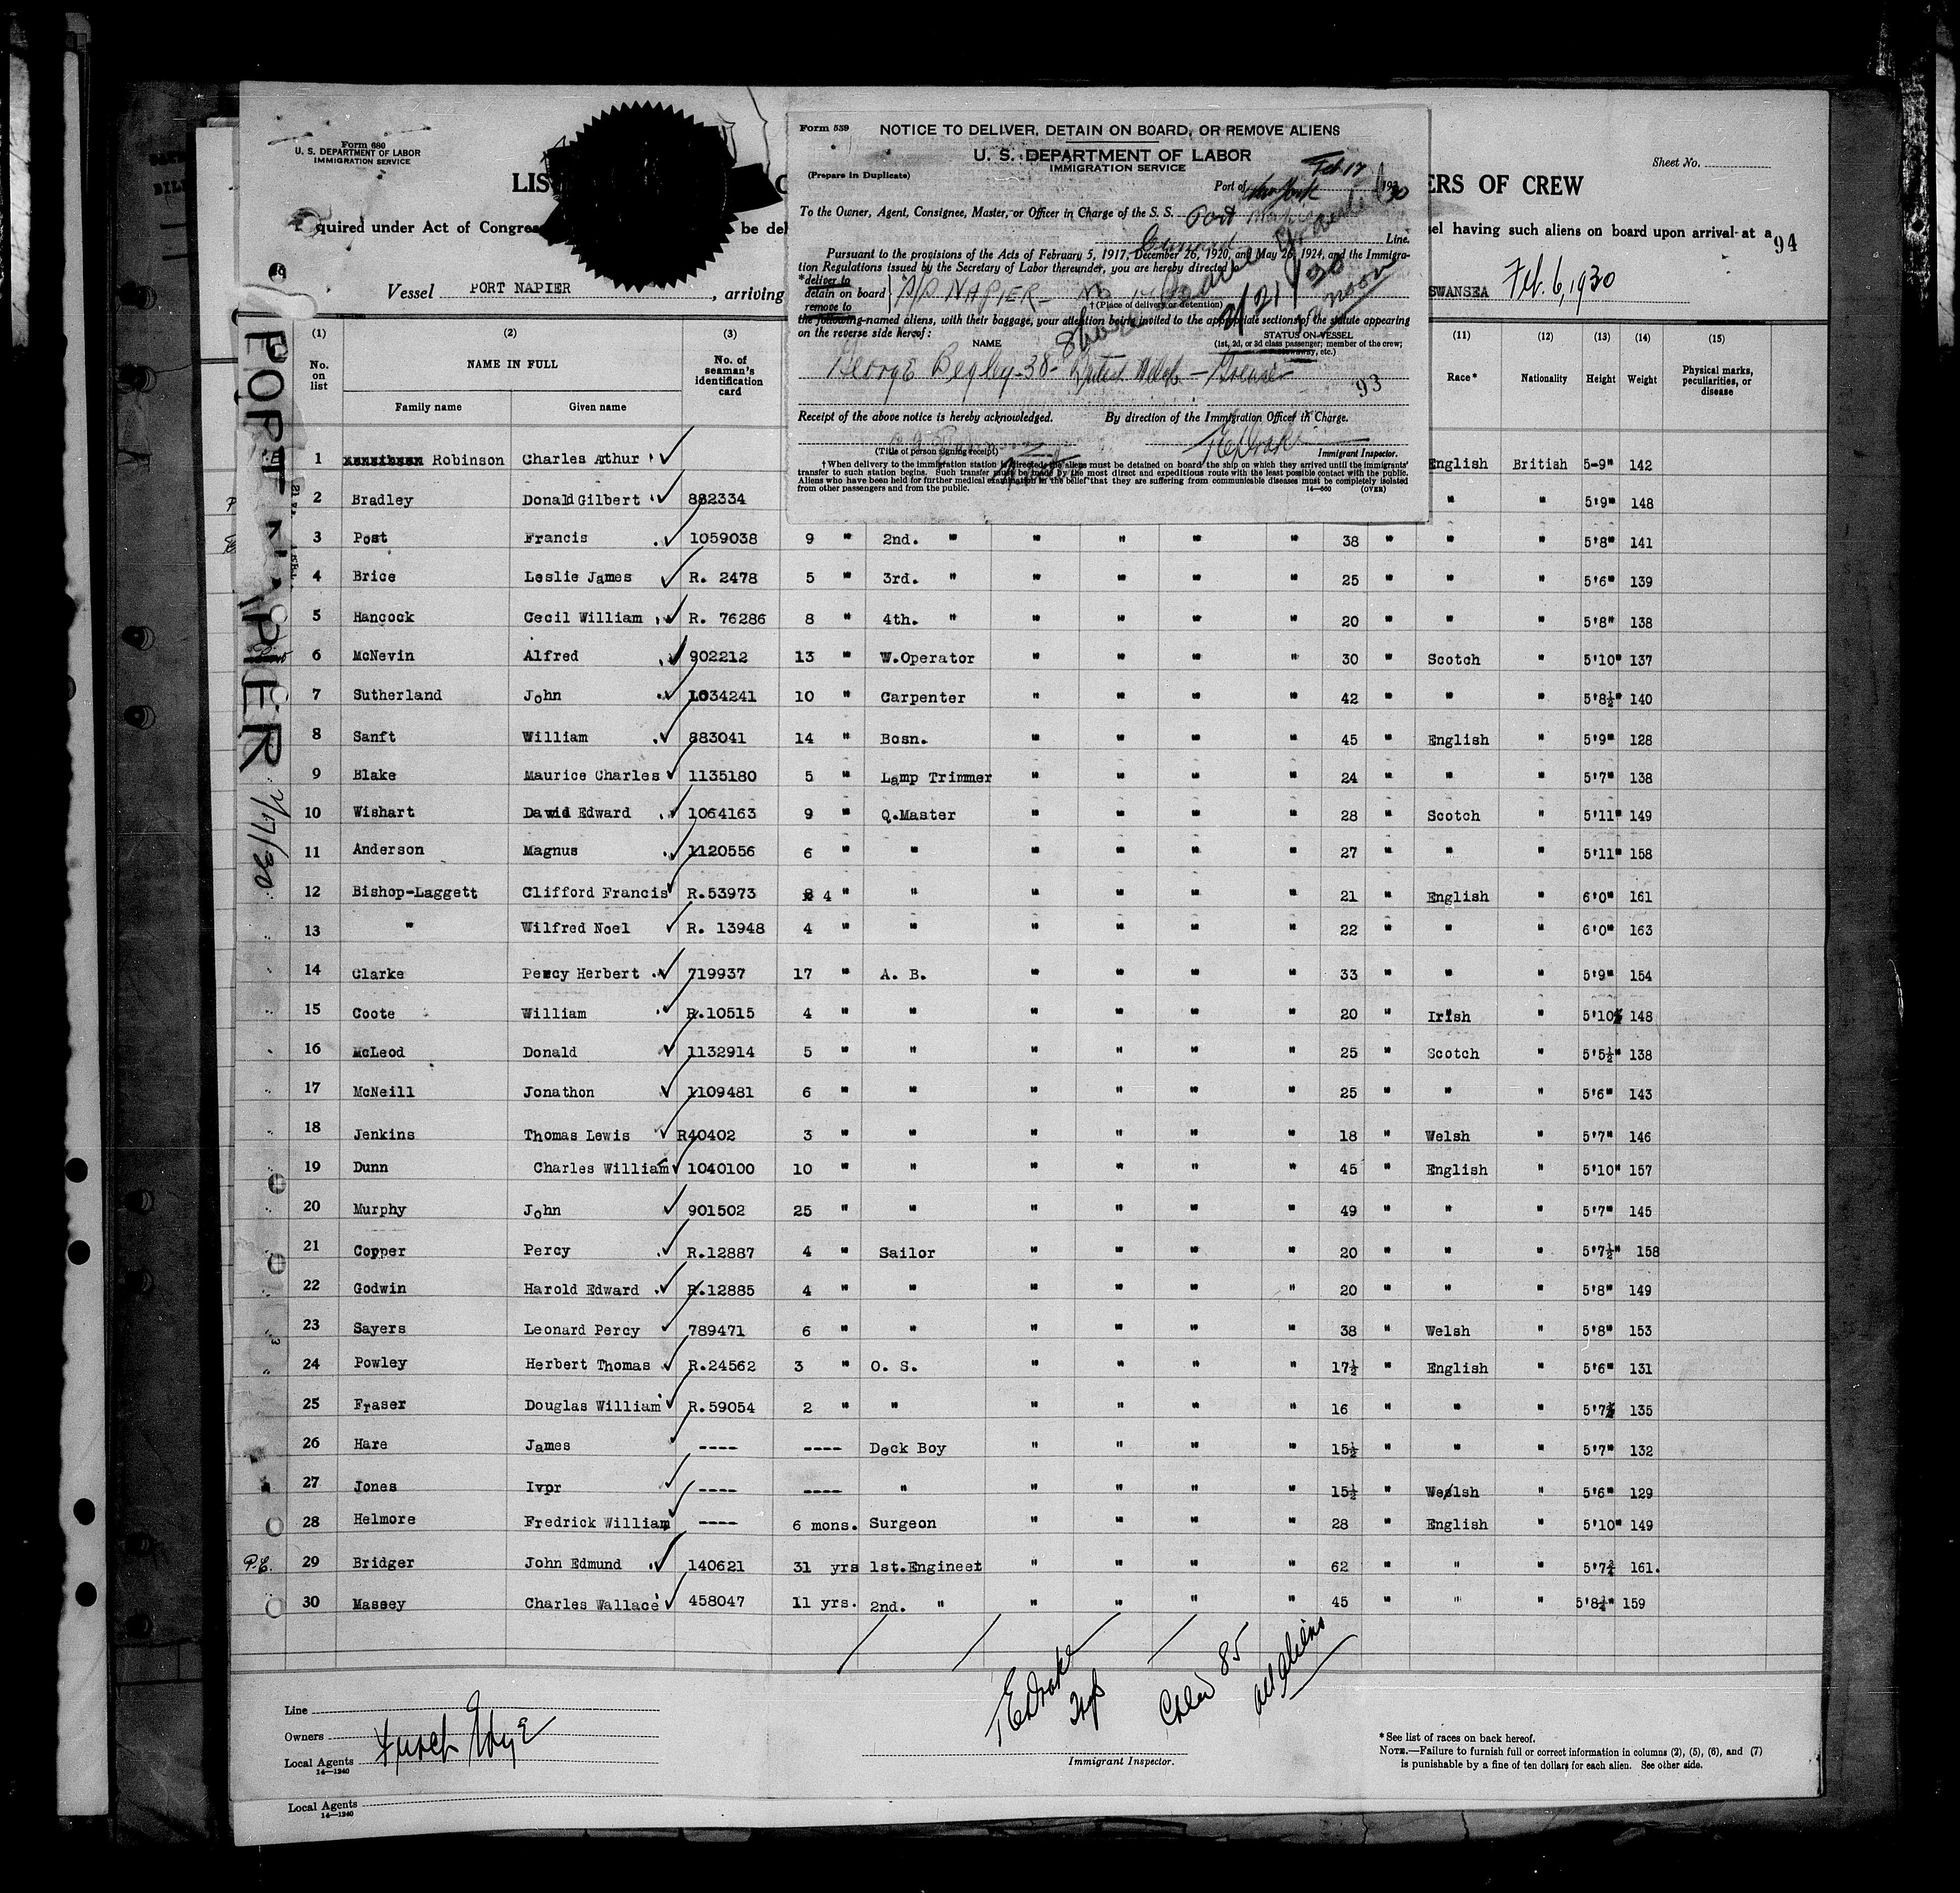 Form 680
U. S. DEPARTMENT OF LABOR
IMMIGRATION SERVICE
Sheet No.
LIS
ERS OF CREW
quired under Act of Congre
be del
sel having such aliens on board upon arrival at a
94
Vessel PORT NAPIER , arriving
SWANSEA Feb. 6, 1930
Form 539
NOTICE TO DELIVER, DETAIN ON BOARD, OR REMOVE ALIENS
U. S. DEPARTMENT OF LABOR
IMMIGRATION SERVICE
(Prepare in Duplicate)
Port of New York Feb 17 1930
To the Owner, Agent, Consignee, Master, or Officer in Charge of the S. S. Port Napier
Cunard Line.
Pursuant to the provisions of the Acts of February 5, 1917, December 26, 1920, and May 26, 1924, and the Immigra-
tion Regulations issued by the Secretary of Labor thereunder, you are hereby directed
*deliver to
detain on board
remove to
S/S NAPIER
†(Place of delivery or detention)
2/21/30
noon
the following-named aliens, with their baggage, your attention being invited to the appropriate sections of the statute appearing
on the reverse side hereof:
NAME
STATUS ON VESSEL
(1st, 2d, or 3d class passenger; member of the crew;
stowaway, etc.)
George Begley - 38 - - Greaser
93
Receipt of the above notice is hereby acknowledged.
By direction of the Immigration Officer in Charge.
(Title of person signing receipt)
Immigrant Inspector.
†When delivery to the immigration station is directed, the aliens must be detained on board the ship on which they arrived until the immigrants'
transfer to such station begins. Such transfer must be made by the most direct and expeditious route with the least possible contact with the public.
Aliens who have been held for further medical examination in the belief that they are suffering from communicable diseases must be completely isolated
from other passengers and from the public.
14—660 (OVER)
PORT NAPIER
2/17/30
(1) (2) (3) (11) (12) (13) (14) (15)
No. on list
NAME IN FULL
Family name Given name
No. of seaman's identification card
Race* Nationality Height Weight
Physical marks, peculiarities, or disease
1 Robinson Charles Arthur English British 5-9" 142
2 Bradley Donald Gilbert 882334 " " 5'9" 148
3 Post Francis 1059038 9 " 2nd. " " " " " 38 " " " 5'8" 141
4 Brice Leslie James R. 2478 5 " 3rd. " " " " " 25 " " " 5'6" 139
5 Hancock Cecil William R. 76286 8 " 4th. " " " " " 20 " " " 5'8" 138
6 McNevin Alfred 902212 13 " W.Operator " " " " 30 " Scotch " 5'10" 137
7 Sutherland John 1034241 10 " Carpenter " " " " 42 " " " 5'8½" 140
8 Sanft William 883041 14 " Bosn. " " " " 45 " English " 5'9" 128
9 Blake Maurice Charles 1135180 5 " Lamp Trimmer " " " " 24 " " " 5'7" 138
10 Wishart David Edward 1064163 9 " Q.Master " " " " 28 " Scotch " 5'11" 149
11 Anderson Magnus 1120556 6 " " " " " " 27 " " " 5'11" 158
12 Bishop-Laggett Clifford Francis R.53973 4 " " " " " " 21 " English " 6'0" 161
13 " Wilfred Noel R. 13948 4 " " " " " " 22 " " " 6'0" 163
14 Clarke Percy Herbert 719937 17 " A. B. " " " " 33 " " " 5'9" 154
15 Coote William R.10515 4 " " " " " " 20 " Irish " 5'10 148
16 McLeod Donald 1132914 5 " " " " " " 25 " Scotch " 5'5½" 138
17 McNeill Jonathon 1109481 6 " " " " " " 25 " " " 5'6" 143
18 Jenkins Thomas Lewis R40402 3 " " " " " " 18 " Welsh " 5'7" 146
19 Dunn Charles William 1040100 10 " " " " " " 45 " English " 5'10" 157
20 Murphy John 901502 25 " " " " " " 49 " " " 5'7" 145
21 Copper Percy R.12887 4 " Sailor " " " " 20 " " " 5'7½" 158
22 Godwin Harold Edward R.12885 4 " " " " " " 20 " " " 5'8" 149
23 Sayers Leonard Percy 789471 6 " " " " " " 38 " Welsh " 5'8" 153
24 Powley Herbert Thomas R.24562 3 " O. S. " " " " 17½ " English " 5'6" 131
25 Fraser Douglas William R.59054 2 " " " " " " 16 " " " 5'7 135
26 Hare James ---- ---- Deck Boy " " " " 15½ " " " 5'7" 132
27 Jones Ivor ---- ---- " " " " " 15½ " Welsh " 5'6" 129
28 Helmore Fredrick William ---- 6 mons. Surgeon " " " " 28 " English " 5'10" 149
P.E. 29 Bridger John Edmund 140621 31 yrs 1st.Engineer " " " " 62 " " " 5'7 161.
30 Massey Charles Wallace 458047 11 yrs. 2nd. " " " " " 45 " " " 5'8½" 159
Line
Owners
Local Agents Funch Edye
14—1240
Local Agents
14—1240
Crew 85
all aliens
Immigrant Inspector.
*See list of races on back hereof.
NOTE.—Failure to furnish full or correct information in columns (2), (5), (6), and (7)
is punishable by a fine of ten dollars for each alien. See other side.